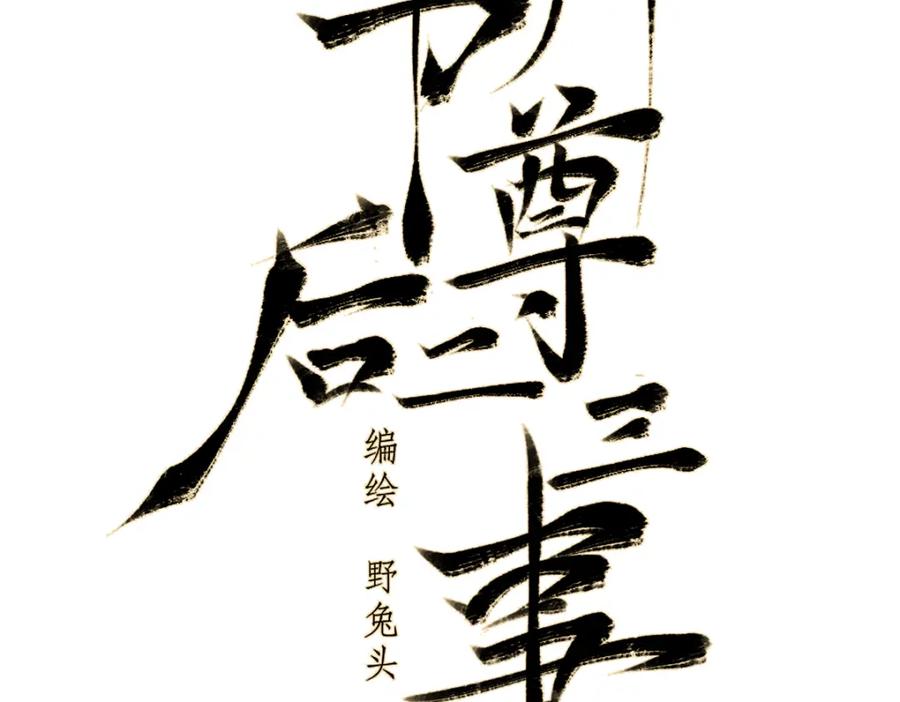 尊
后二三事
编绘 野兔头